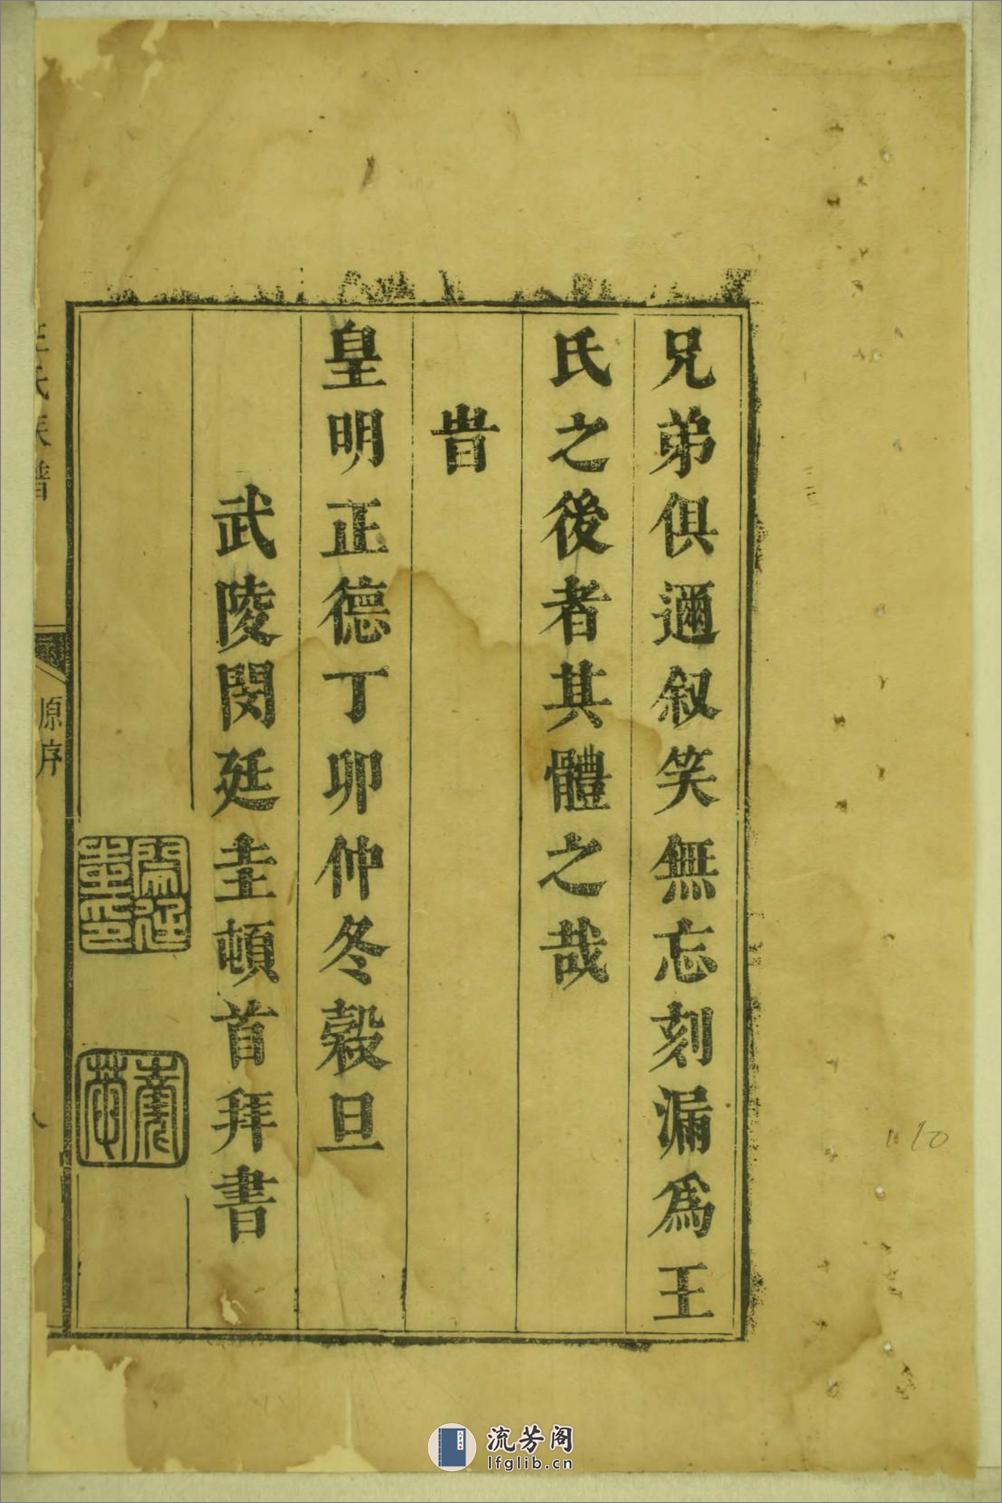 兄弟俱邇叙笑無忘刻漏爲王
氏之後者其體之哉
旹
皇明正德丁卯仲冬穀旦
武陵閔廷圭頓首拜書
王氏族譜
原序
八
10
流芳阁
lfglib.cn